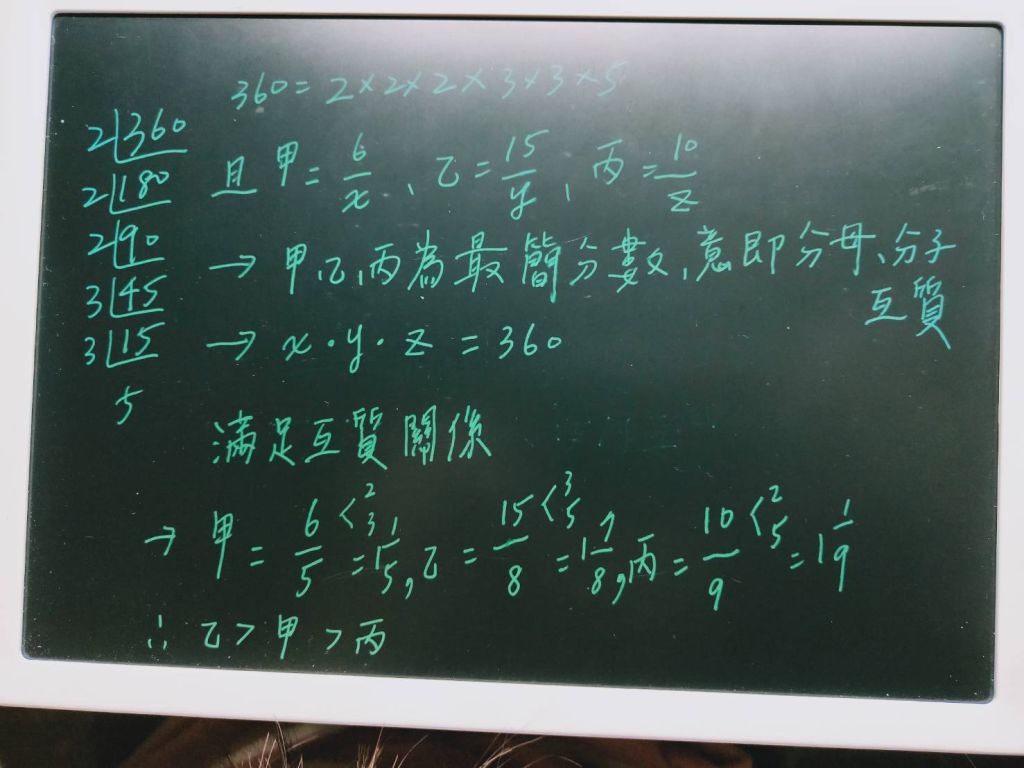 360 = 2×2×2×3×3×5
2 360
2 180
2 90
3 45
3 15
5
且 甲 = 6/x、乙 = 15/y、丙 = 10/z
→ 甲、乙、丙為最簡分數,意即分母、分子
互質
→ x・y・z = 360
滿足互質關係
→ 甲 = 6/5 <2 3 = 1 1/5, 乙 = 15/8 <3 5 = 1 7/8, 丙 = 10/9 <2 5 = 1 1/9
∴ 乙 > 甲 > 丙